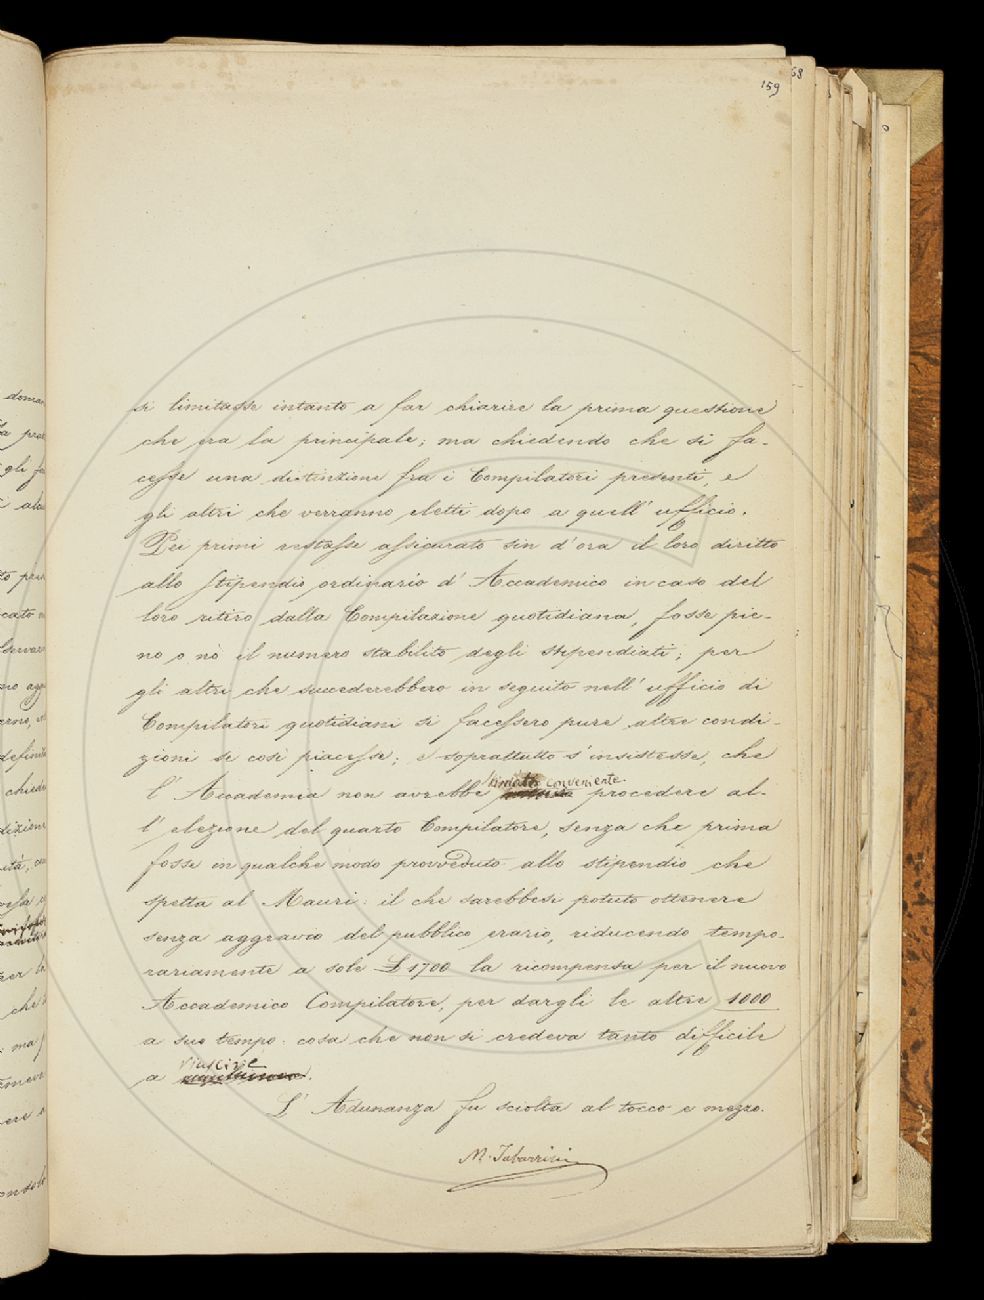 159
si limitasse intanto a far chiarire la prima questione
che era la principale; ma chiedendo che si fa-
cesse una distinzione fra i Compilatori presenti, e
gli altri che verranno eletti dopo a quell' ufficio.
Pei primi restasse assicurato sin d'ora il loro diritto
allo stipendio ordinario d' Accademico in caso del
loro ritiro dalla Compilazione quotidiana, fosse pie-
no o nò il numero stabilito degli stipendiati; per
gli altri che succederebbero in seguito nell' ufficio di
Compilatori quotidiani si facessero pure altre condi-
zioni se così piacesse; e soprattutto s'insistesse, che
conveniente
l' Accademia non avrebbe procedere al-
l' elezione del quarto Compilatore, senza che prima
fosse in qualche modo provveduto allo stipendio che
spetta al Mauri: il che sarebbesi potuto ottenere
senza aggravio del pubblico erario, riducendo tempo-
rariamente a sole £ 1700 la ricompensa per il nuovo
Accademico Compilatore, per dargli le altre 1000
a suo tempo: cosa che non si credeva tanto difficile
riuscire
a .
L' Adunanza fu sciolta al tocco e mezzo.
M. Tabarrini